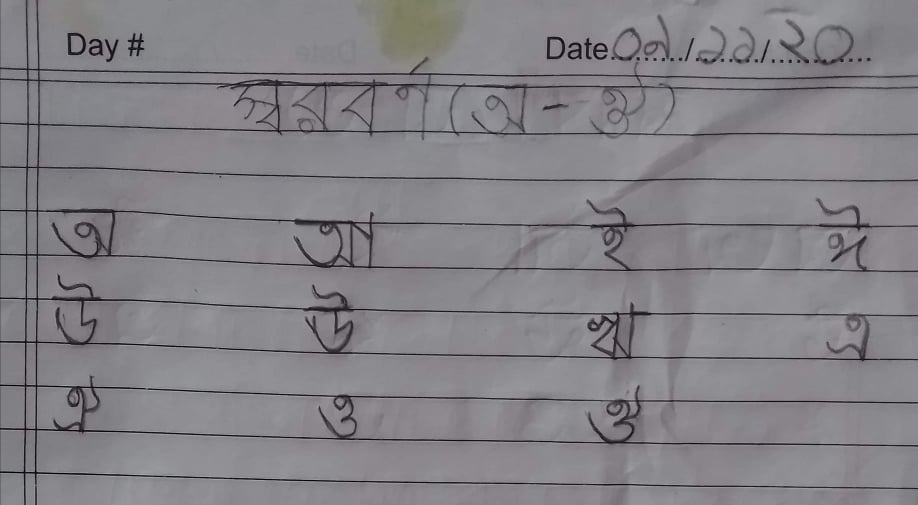 Day # Date ০৯/১১/২০
স্বরবর্ণ (অ - ঔ)
অ আ ই ঈ
উ ঊ ঋ এ
ঐ ও ঔ